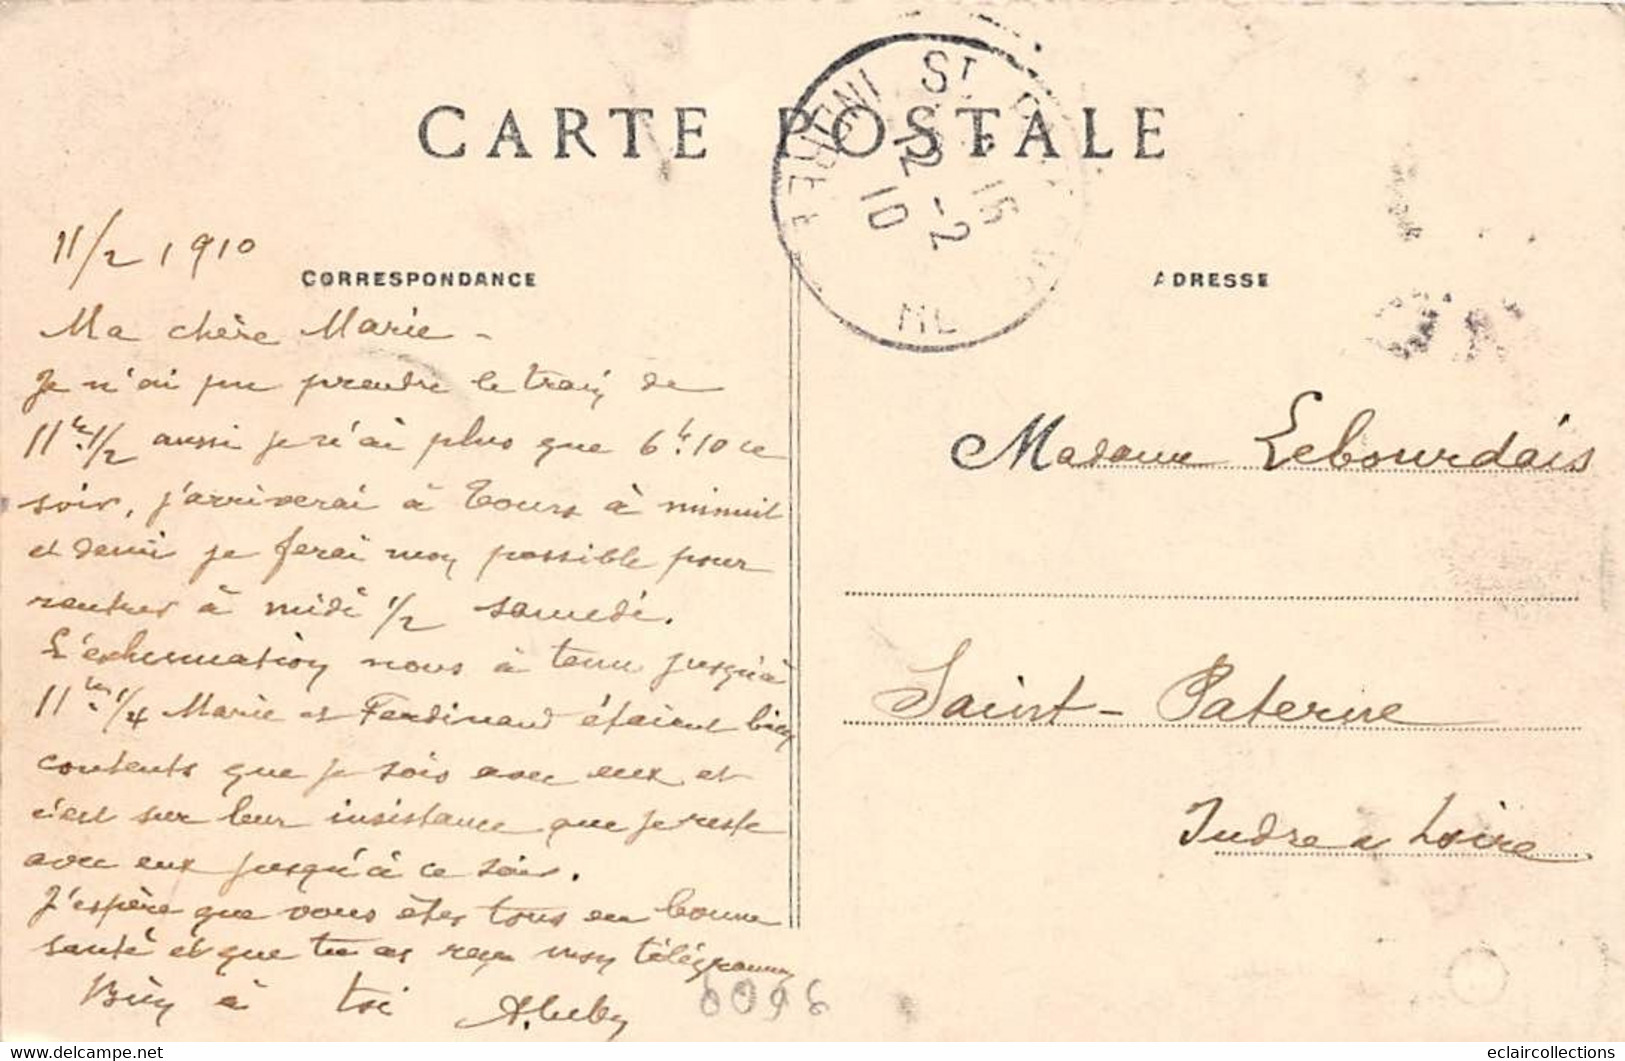 CARTE POSTALE
11/2 1910
CORRESPONDANCE
Ma chère Marie -
Je n'ai pu prendre le train de
11h 1/2 aussi je n'ai plus que 6h10 ce
soir, j'arriverai à Tours à minuit
et demi je ferai mon possible pour
rentrer à midi 1/2 samedi.
L'exhumation nous à tenu jusqu'à
11h 1/4 Marie et Ferdinand étaient bien
contents que je sois avec eux et
c'est sur leur insistance que je reste
avec eux jusqu'à ce soir.
J'espère que vous êtes tous en bonne
santé et que tu as reçu mon télégramme
Bien à toi
6096
ST
INDRE
12 -2
10
ADRESSE
Madame Lebourdais
Saint-Paterne
Indre & Loire
eclaircollections
www.delcampe.net